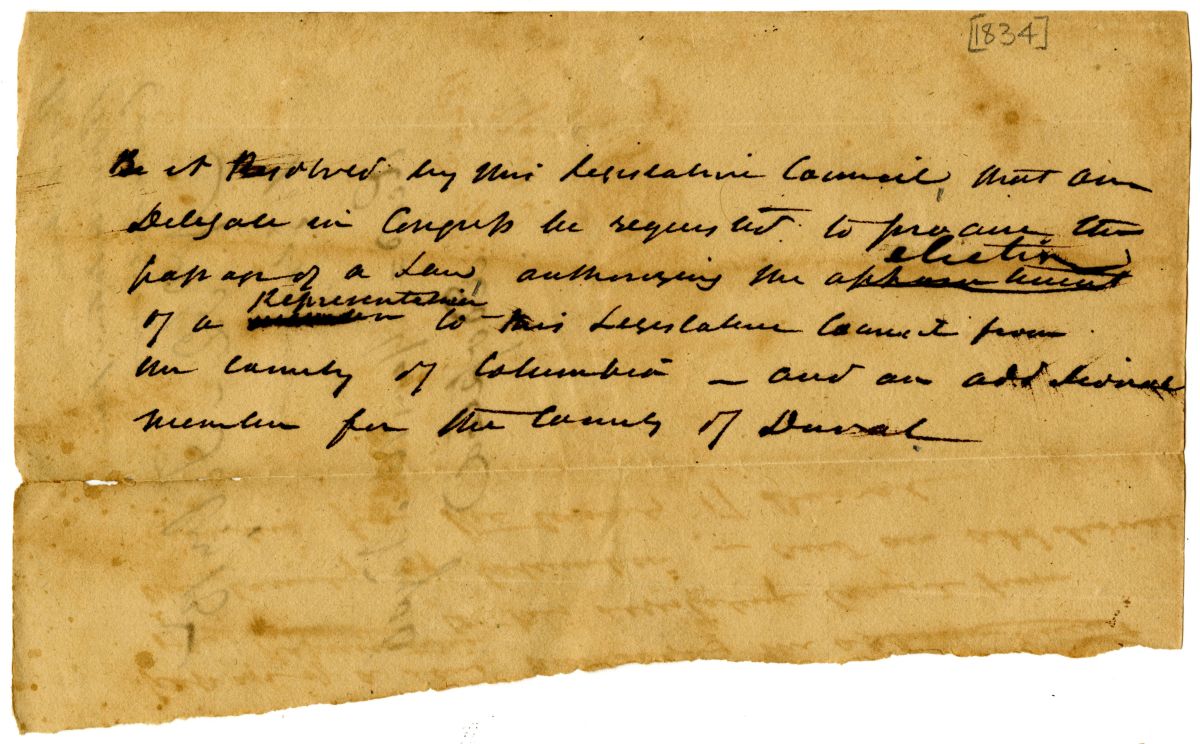 [1834]
Be it Resolved by this Legislative Council, that our
Delegate in Congress be requested to procure the
election
passage of a Law, authorizing the appointment
Representative
of a member to this Legislative Council from
the County of Columbia – and an additional
member for the County of Duval